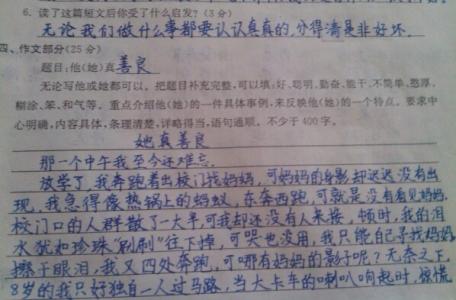 6. 读了这篇短文后你受了什么启发?(3分)
无论我们做什么事都要认认真真的,分得清是非好坏.
四、作文部分(25分)
题目:他(她)真善良
无论写他或她都可以。把题目补充完整,可以填:好、聪明、勤奋、能干、不简单、憨厚、
糊涂、笨、和气等。重点介绍他(她)的一件具体事例,来反映他(她)的一个特点。要求中
心明确,内容具体,条理清楚,详略得当,语句通顺。不少于400字。
她真善良
那一个中午我至今还难忘.
放学了,我奔跑着出校门找妈妈,可妈妈的身影却迟迟没有出
现,我急得像热锅上的蚂蚁,东奔西跑,可就是没有看见妈妈,
校门口的人群散了一大半,可我却还没有人来接,顿时,我的泪
水犹如珍珠"刷刷"往下掉,可哭也没用,我只能自己寻找妈妈,
擦干眼泪,我又四处奔跑,可哪有妈妈的影子呢?无奈之下,
8岁的我只好独自一人过马路,当大卡车的喇叭响起时,惊慌